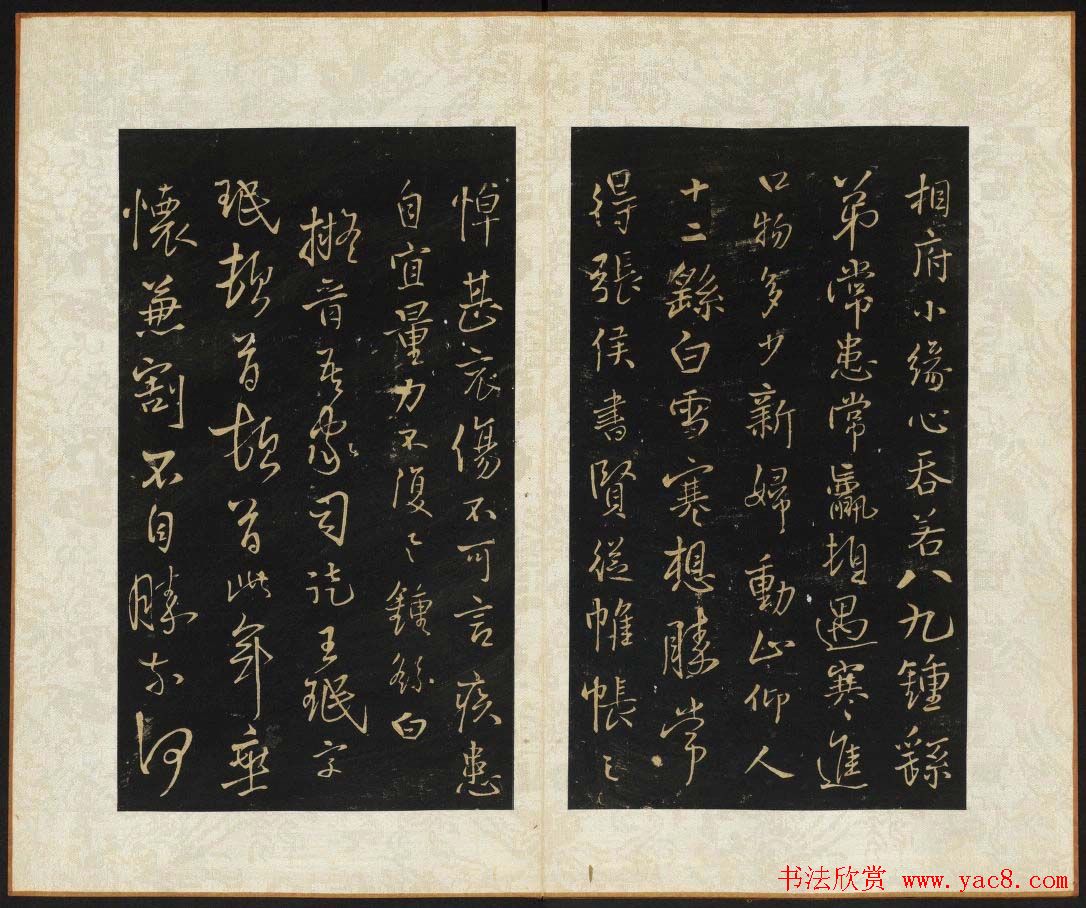 相府小緣心吞若八九鍾繇
弟常患常羸頓遇寒進
口物多少新婦動止仰人
十二繇白雪寒想勝常
得張侯書賢從帷帳之
悼甚哀傷不可言疾患
自宜量力不復之鍾繇白
擬晉吾家司徒王珉字
珉頓首頓首此年垂
懷兼割不自勝奈何
书法欣赏 www.yac8.com